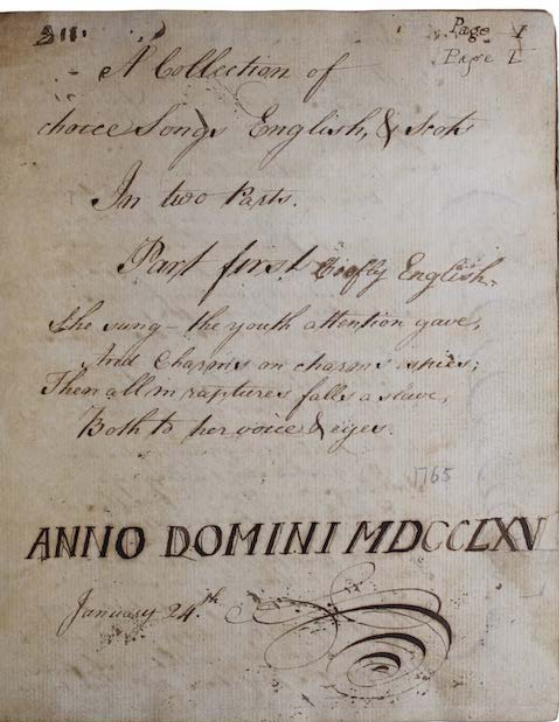 211.
Page I
Page I
A Collection of
choice Songs English, & Scots
In two Parts.
Part first Chiefly English.
She sung - the youth attention gave,
And Charms on charms espies;
Then all in raptures falls a slave,
Both to her voice & eyes.
1765
ANNO DOMINI MDCCLXV
January 24.th